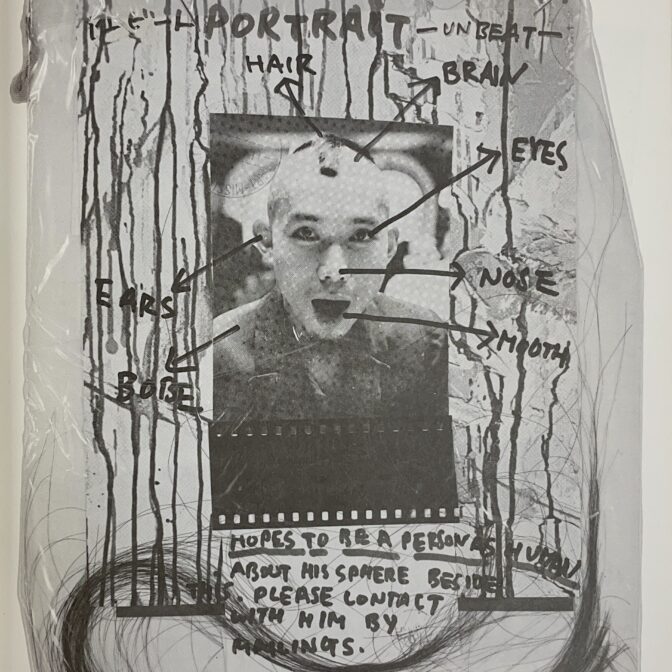 PORTRAIT —UNBEAT—
HAIR
BRAIN
EYES
EARS
NOSE
MOOTH
BOBE
HOPES TO BE A PERSON AS HUMAN
ABOUT HIS SPHERE BESIDE
PLEASE CONTACT
WITH HIM BY
MAILINGS.